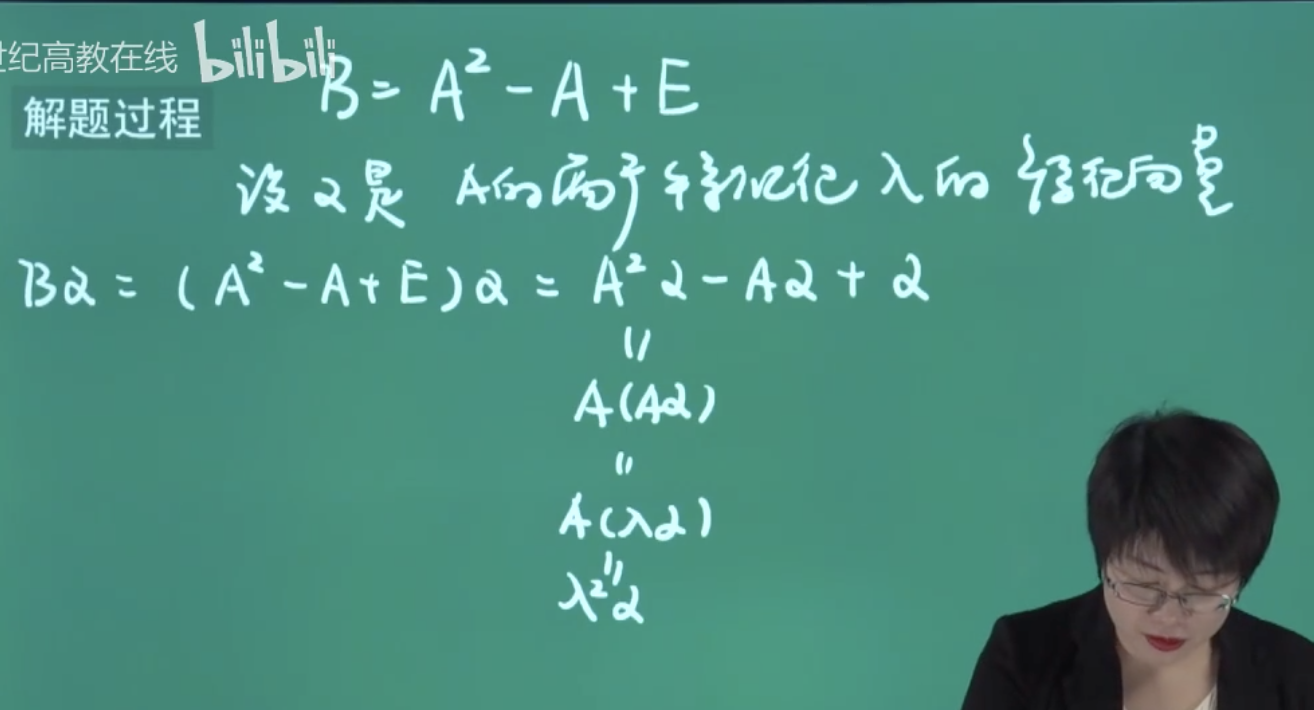 世纪高教在线 bilibili
B = A² - A + E
解题过程
设α是 A的属于特征值 λ的特征向量
Bα = (A² - A + E)α = A²α - Aα + α
||
A(Aα)
||
A(λα)
||
λ²α